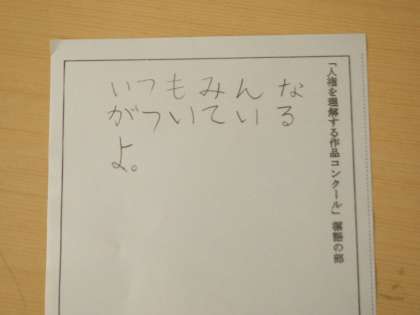 いつもみんな
がついている
よ。
「人権を理解する作品コンクール」 標語の部